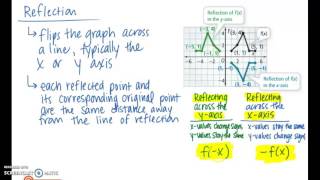 Reflection
↳ flips the graph across
a line, typically the
x or y axis
↳ each reflected point and
its corresponding original point
are the same distance away
from the line of reflection
Reflection of f(x)
in the y-axis
Reflection of f(x)
in the x-axis
Reflecting
across the
y-axis
x-values change sign
y-values stay the same
f(-x)
Reflecting
across the
x-axis
x-values stay the same
y-values change sign
-f(x)